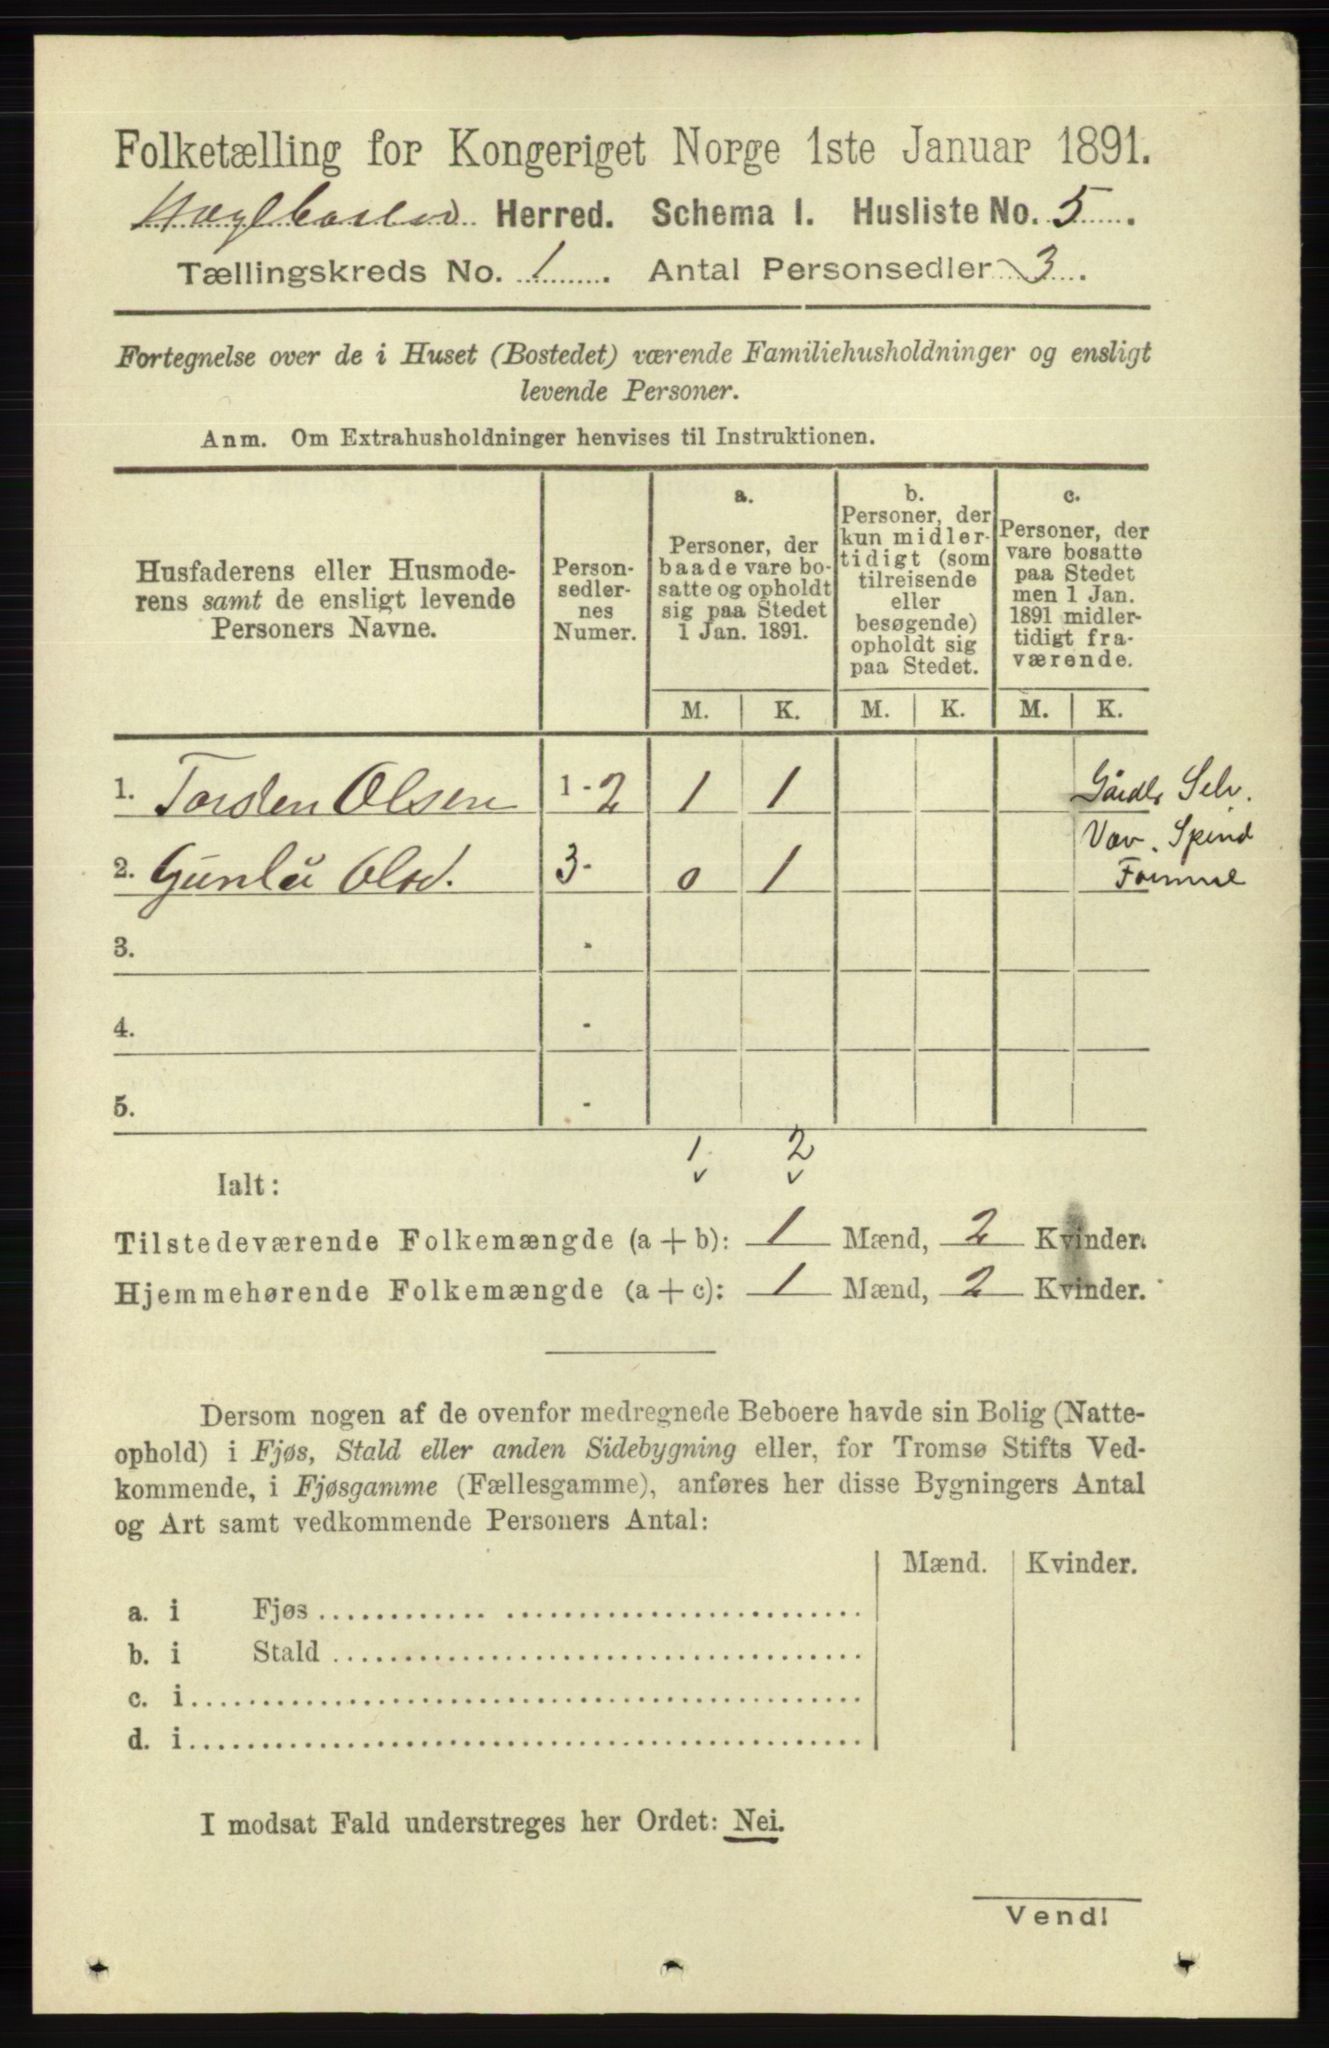 Folketælling for Kongeriget Norge 1ste Januar 1891.
Hægebostad Herred. Schema I. Husliste No. 5.
Tællingskreds No. 1. Antal Personsedler 3.
Fortegnelse over de i Huset (Bostedet) værende Familiehusholdninger og ensligt
levende Personer.
Anm. Om Extrahusholdninger henvises til Instruktionen.
Husfaderens eller Husmode-
rens samt de ensligt levende
Personers Navne.
Person-
sedler-
nes
Numer.
a.
Personer, der
baade vare bo-
satte og opholdt
sig paa Stedet
1 Jan. 1891.
b.
Personer, der
kun midler-
tidigt (som
tilreisende
eller
besøgende)
opholdt sig
paa Stedet.
c.
Personer, der
vare bosatte
paa Stedet
men 1 Jan.
1891 midler-
tidigt fra-
værende.
M. K. M. K. M. K.
1. Torsten Olsen 1 - 2 1 1 Gårdbr Selv.
Væv. Spind
2. Gunlu Olsd. 3 - 0 1
3. -
4. -
5. -
1 2
Ialt:
Tilstedeværende Folkemængde (a + b): 1 Mænd, 2 Kvinder.
Hjemmehørende Folkemængde (a + c): 1 Mænd, 2 Kvinder.
Dersom nogen af de ovenfor medregnede Beboere havde sin Bolig (Natte-
ophold) i Fjøs, Stald eller anden Sidebygning eller, for Tromsø Stifts Ved-
kommende, i Fjøsgamme (Fællesgamme), anføres her disse Bygningers Antal
og Art samt vedkommende Personers Antal:
Mænd. Kvinder.
a. i Fjøs
b. i Stald
c. i
d. i
I modsat Fald understreges her Ordet: Nei.
Vend!